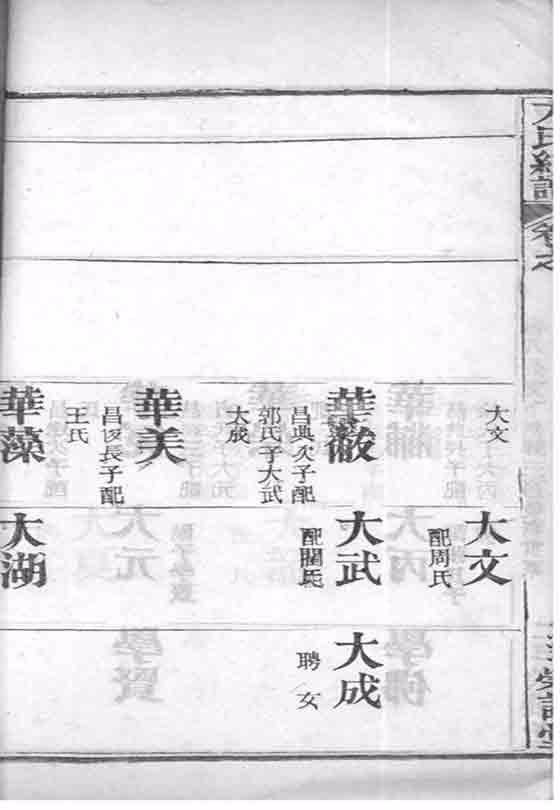 大文
大文
配周氏
華黻
昌興次子配
郭氏子大武
大成
大武
配閻氏
大成
聘女
華美
昌俊長子配
王氏
華藻
大湖